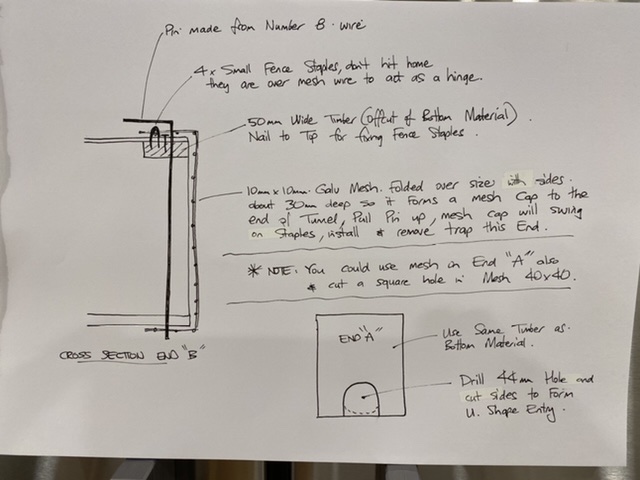 Pin made from Number 8 wire
4x Small Fence Staples, don't hit home
they are over mesh wire to act as a hinge.
50mm Wide Timber (offcut of Bottom Material)
Nail to Top for fixing Fence Staples.
10mm x 10mm Galv Mesh. Folded over size with sides.
about 30mm deep so it forms a mesh Cap to the
end of Tunnel, Pull Pin up, mesh cap will swing
on Staples, install & remove trap this End.
* NOTE: You could use mesh on End "A" also
& cut a square hole in Mesh 40x40.
CROSS SECTION END "B"
END "A"
Use Same Timber as
Bottom Material.
Drill 44mm Hole and
cut sides to Form
U. Shape Entry.